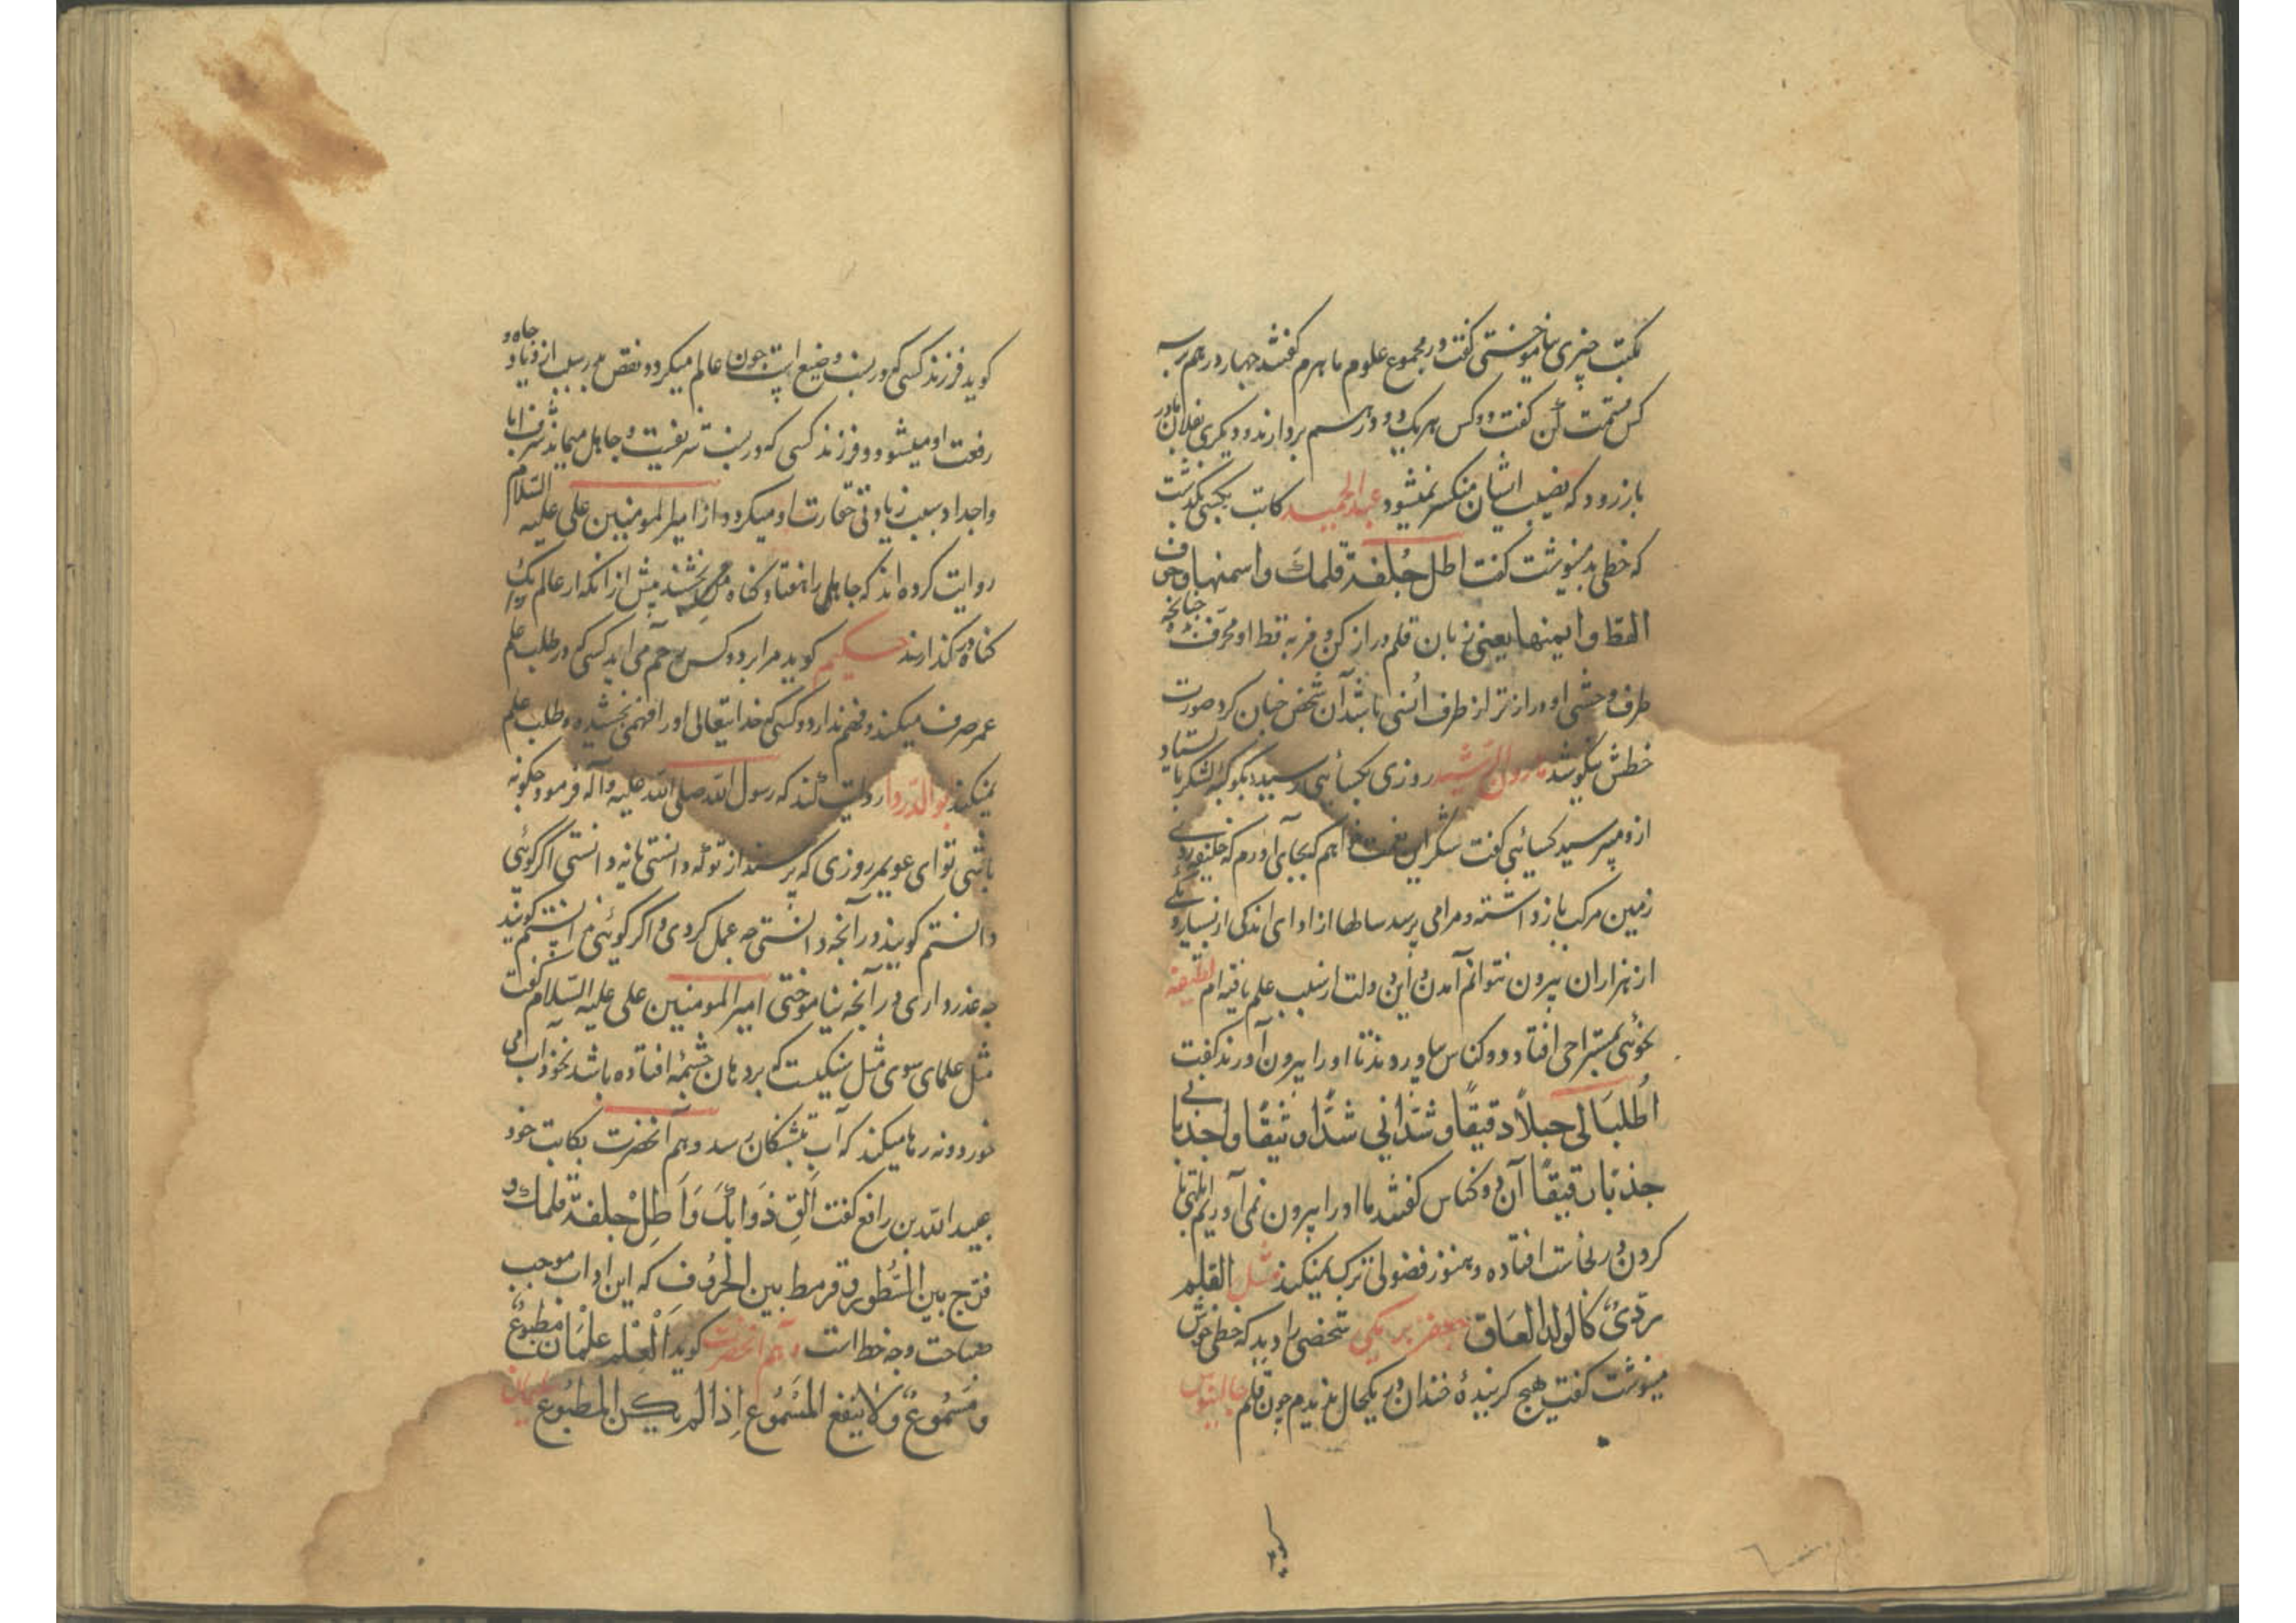 بمکتب چیزی نیاموختی گفت در مجموع علوم ماهرم گفتند چهار درهم بر سه
کس قسمت کن گفت دو کس هر یک دو درهم بردارند و دیگری بفلان مادر
باز رود که نصیب ایشان منکسر نمیشود عبدالحمید کاتب بکسی بگذشت
که خطی بد مینوشت گفت اطل جُلفة قلمك واسمنها وحرف
القط وایمنها یعنی زبان قلم دراز کن و فربه و قط او محرف چنانچه
طرف وحشی او درازتر از طرف اُنسی باشد آن شخص چنان کرد صورت
خطش نیکو شد هارون الرشید روزی بکسائی رسید نیکو گفت لشکر باستاد
ازو میپرسید کسائی گفت شکر این نعمت خواهم که بجای آورم که خلیفه روی
زمین مرکب باز داشته و مرا می پرسد سالها از ادای اندکی از بسیار و یکی
از هزاران بیرون نتوانم آمدن و این دولت از سبب علم یافته ام لطیفه
نحوئی بمستراحی افتاد دو کناس بیاوردند تا او را بیرون آورند گفت
اُطلبَا لی حبلاً دقیقًا و شدّانی شدًّا وثیقًا واجذبانی
جذبًا رقیقًا آن دو کناس گفتند ما او را بیرون نمی آوریم
کردن در نجاست افتاده و هنوز فضولی ترک نمیکند مثل القلم
الردیُّ کالولد العاق جعفر برمکی شخصی را دید که خطی خوش
مینوشت گفت هیچ گریندهٔ خندان در یکحال ندیدم چون قلم جالینوس
گوید فرزند کسی که در نسب وضیع است چون عالم میگردد نقص پدر سبب ازدیاد جاه و
رفعت او میشود و فرزند کسی که در نسب شریفست و جاهل میماند شرف ابا
و اجداد سبب زیادتی حقارت او میگردد از امیر المومنین علی علیه السلام
روایت کرده اند که جاهل را هفتاد گناه می بخشند پیش از آنکه از عالم یک
گناه در گذارند حکیم گوید مرا بر دو کس رحم می اید کسی که در طلب علم
عمر صرف میکند و فهم ندارد و کسی که خدایتعالی او را فهم بخشیده و طلب علم
نمیکند ابو الدردا روایت کند که رسول الله صلی الله علیه و آله فرمود چگونه
باشی تو ای عویمر روزی که پرسند از تو که دانستی یا نه دانستی اگر گوئی
دانستم گویند در آنچه دانستی چه عمل کردی و اگر گوئی ندانستم گویند
چه عذر داری در آنچه نیاموختی امیر المومنین علی علیه السلام گفت
مثل علمای سوی مثل سنگیست که بر دهان چشمه افتاده باشد نه خود آب می
خورد و نه رها میکند که آب بتشنگان رسد و هم آنحضرت بکاتب خود
عبید الله بن رافع گفت اَلِقْ دَواتَكَ وَاَطِلْ جلفة قلمك و
فرّج بین السُّطور و قرمط بین الحُروُف که این اداب موجب
صباحت وجه خط است و هم آنحضرت گوید اَلْعِلم علْمَان مَطبُوعٌ
وَمَسْمُوعٌ وَلا یَنفع المَسْمُوع اِذا لم یکن المطبُوع